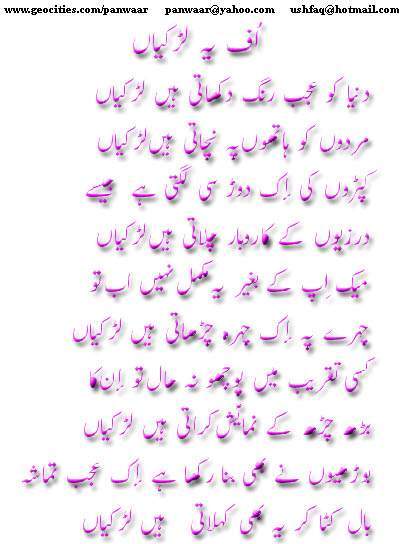 www.geocities.com/panwaar panwaar@yahoo.com ushfaq@hotmail.com
اُف یہ لڑکیاں
دنیا کو عجب رنگ دکھاتی ہیں لڑکیاں
مردوں کو ہاتھوں پہ نچاتی ہیں لڑکیاں
کپڑوں کی اِک دوڑ سی لگتی ہے جیسے
درزیوں کے کاروبار چلاتی ہیں لڑکیاں
میک اپ کے بغیر یہ مکمل نہیں اب تو
چہرے پہ اِک چہرہ چڑھاتی ہیں لڑکیاں
کسی تقریب میں پوچھو نہ حال تو اِن کا
بڑھ چڑھ کے نمائیش کراتی ہیں لڑکیاں
بوڑھیوں نے بھی بنا رکھا ہے اِک عجب تماشہ
بال کٹا کر یہ بھی کہلاتی ہیں لڑکیاں